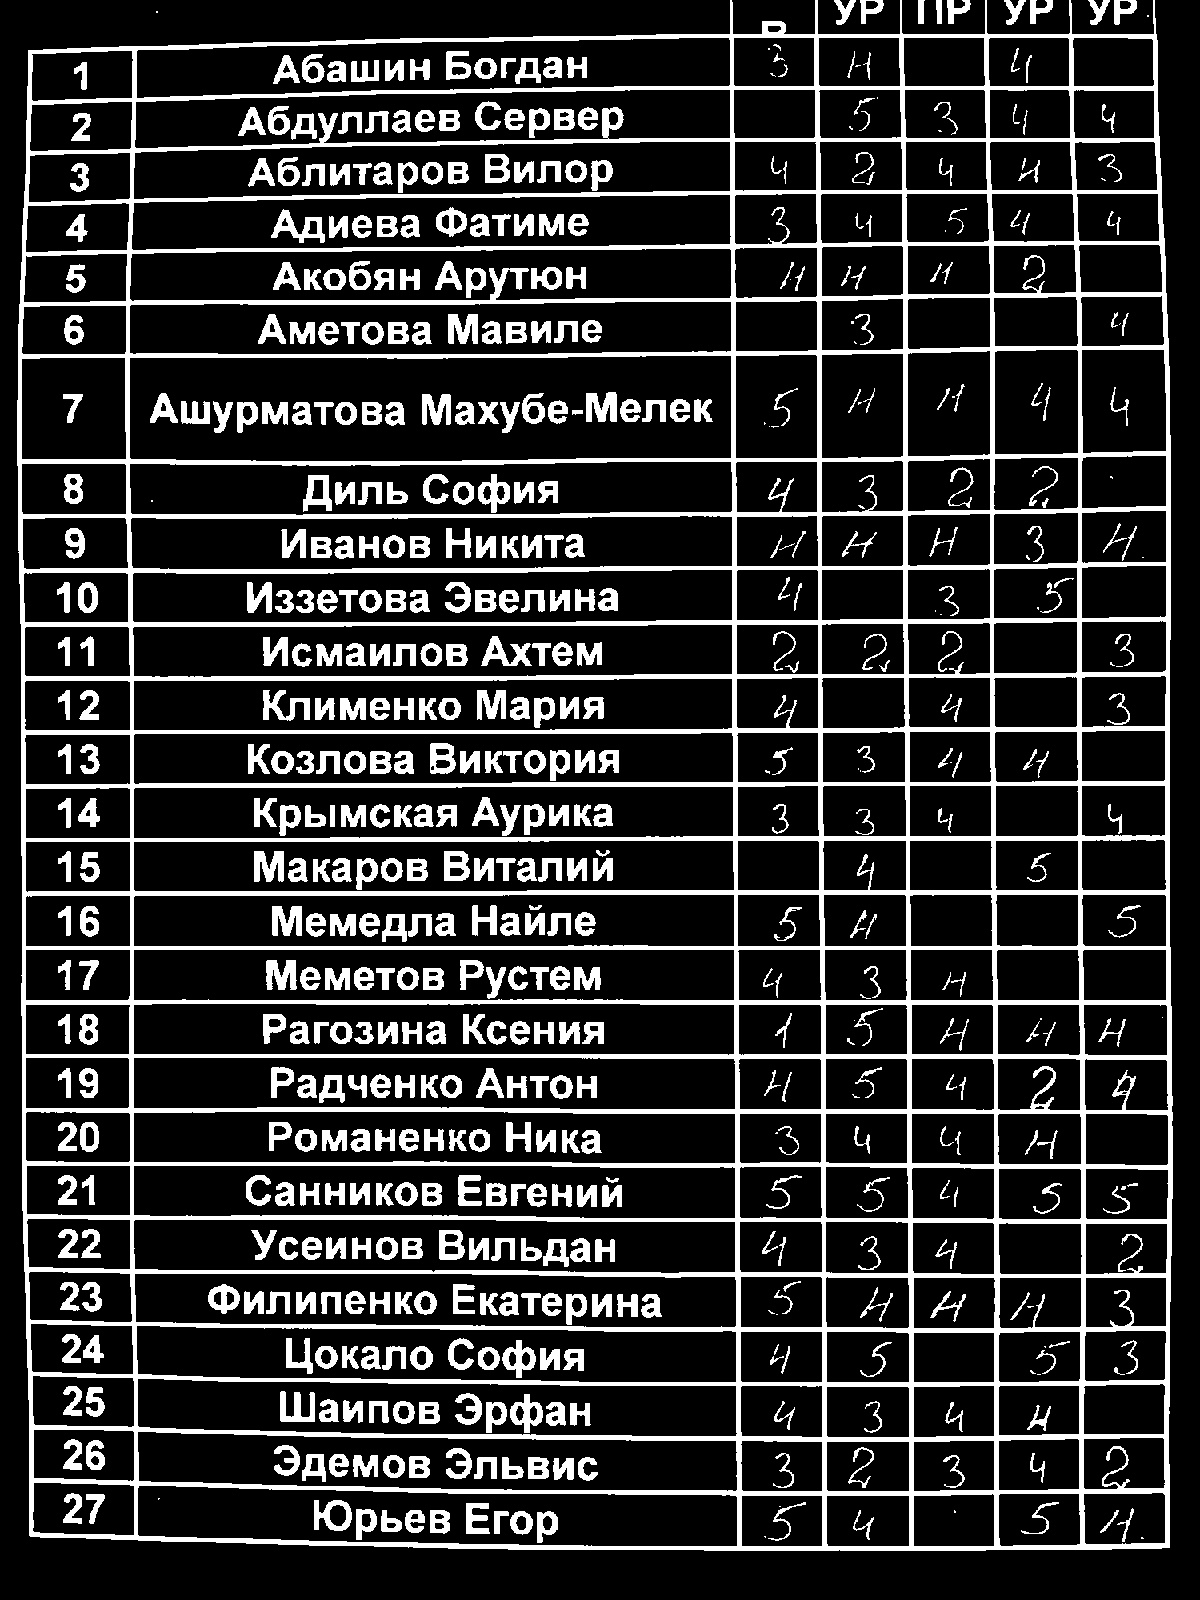 УР ПР УР УР
1 Абашин Богдан 3 н 4
2 Абдуллаев Сервер 5 3 4 4
3 Аблитаров Вилор 4 2 4 н 3
4 Адиева Фатиме 3 4 5 4 4
5 Акобян Арутюн н н н 2
6 Аметова Мавиле 3 4
7 Ашурматова Махубе-Мелек 5 н н 4 4
8 Диль София 4 3 2 2
9 Иванов Никита н н н 3 н
10 Иззетова Эвелина 4 3 5
11 Исмаилов Ахтем 2 2 2 3
12 Клименко Мария 4 4 3
13 Козлова Виктория 5 3 4 4
14 Крымская Аурика 3 3 4 4
15 Макаров Виталий 4 5
16 Мемедла Найле 5 н 5
17 Меметов Рустем 4 3 н
18 Рагозина Ксения 1 5 н н н
19 Радченко Антон н 5 4 2 4
20 Романенко Ника 3 4 4 н
21 Санников Евгений 5 5 4 5 5
22 Усеинов Вильдан 4 3 4 2
23 Филипенко Екатерина 5 н н н 3
24 Цокало София 4 5 5 3
25 Шаипов Эрфан 4 3 4 н
26 Эдемов Эльвис 3 2 3 4 2
27 Юрьев Егор 5 4 5 н